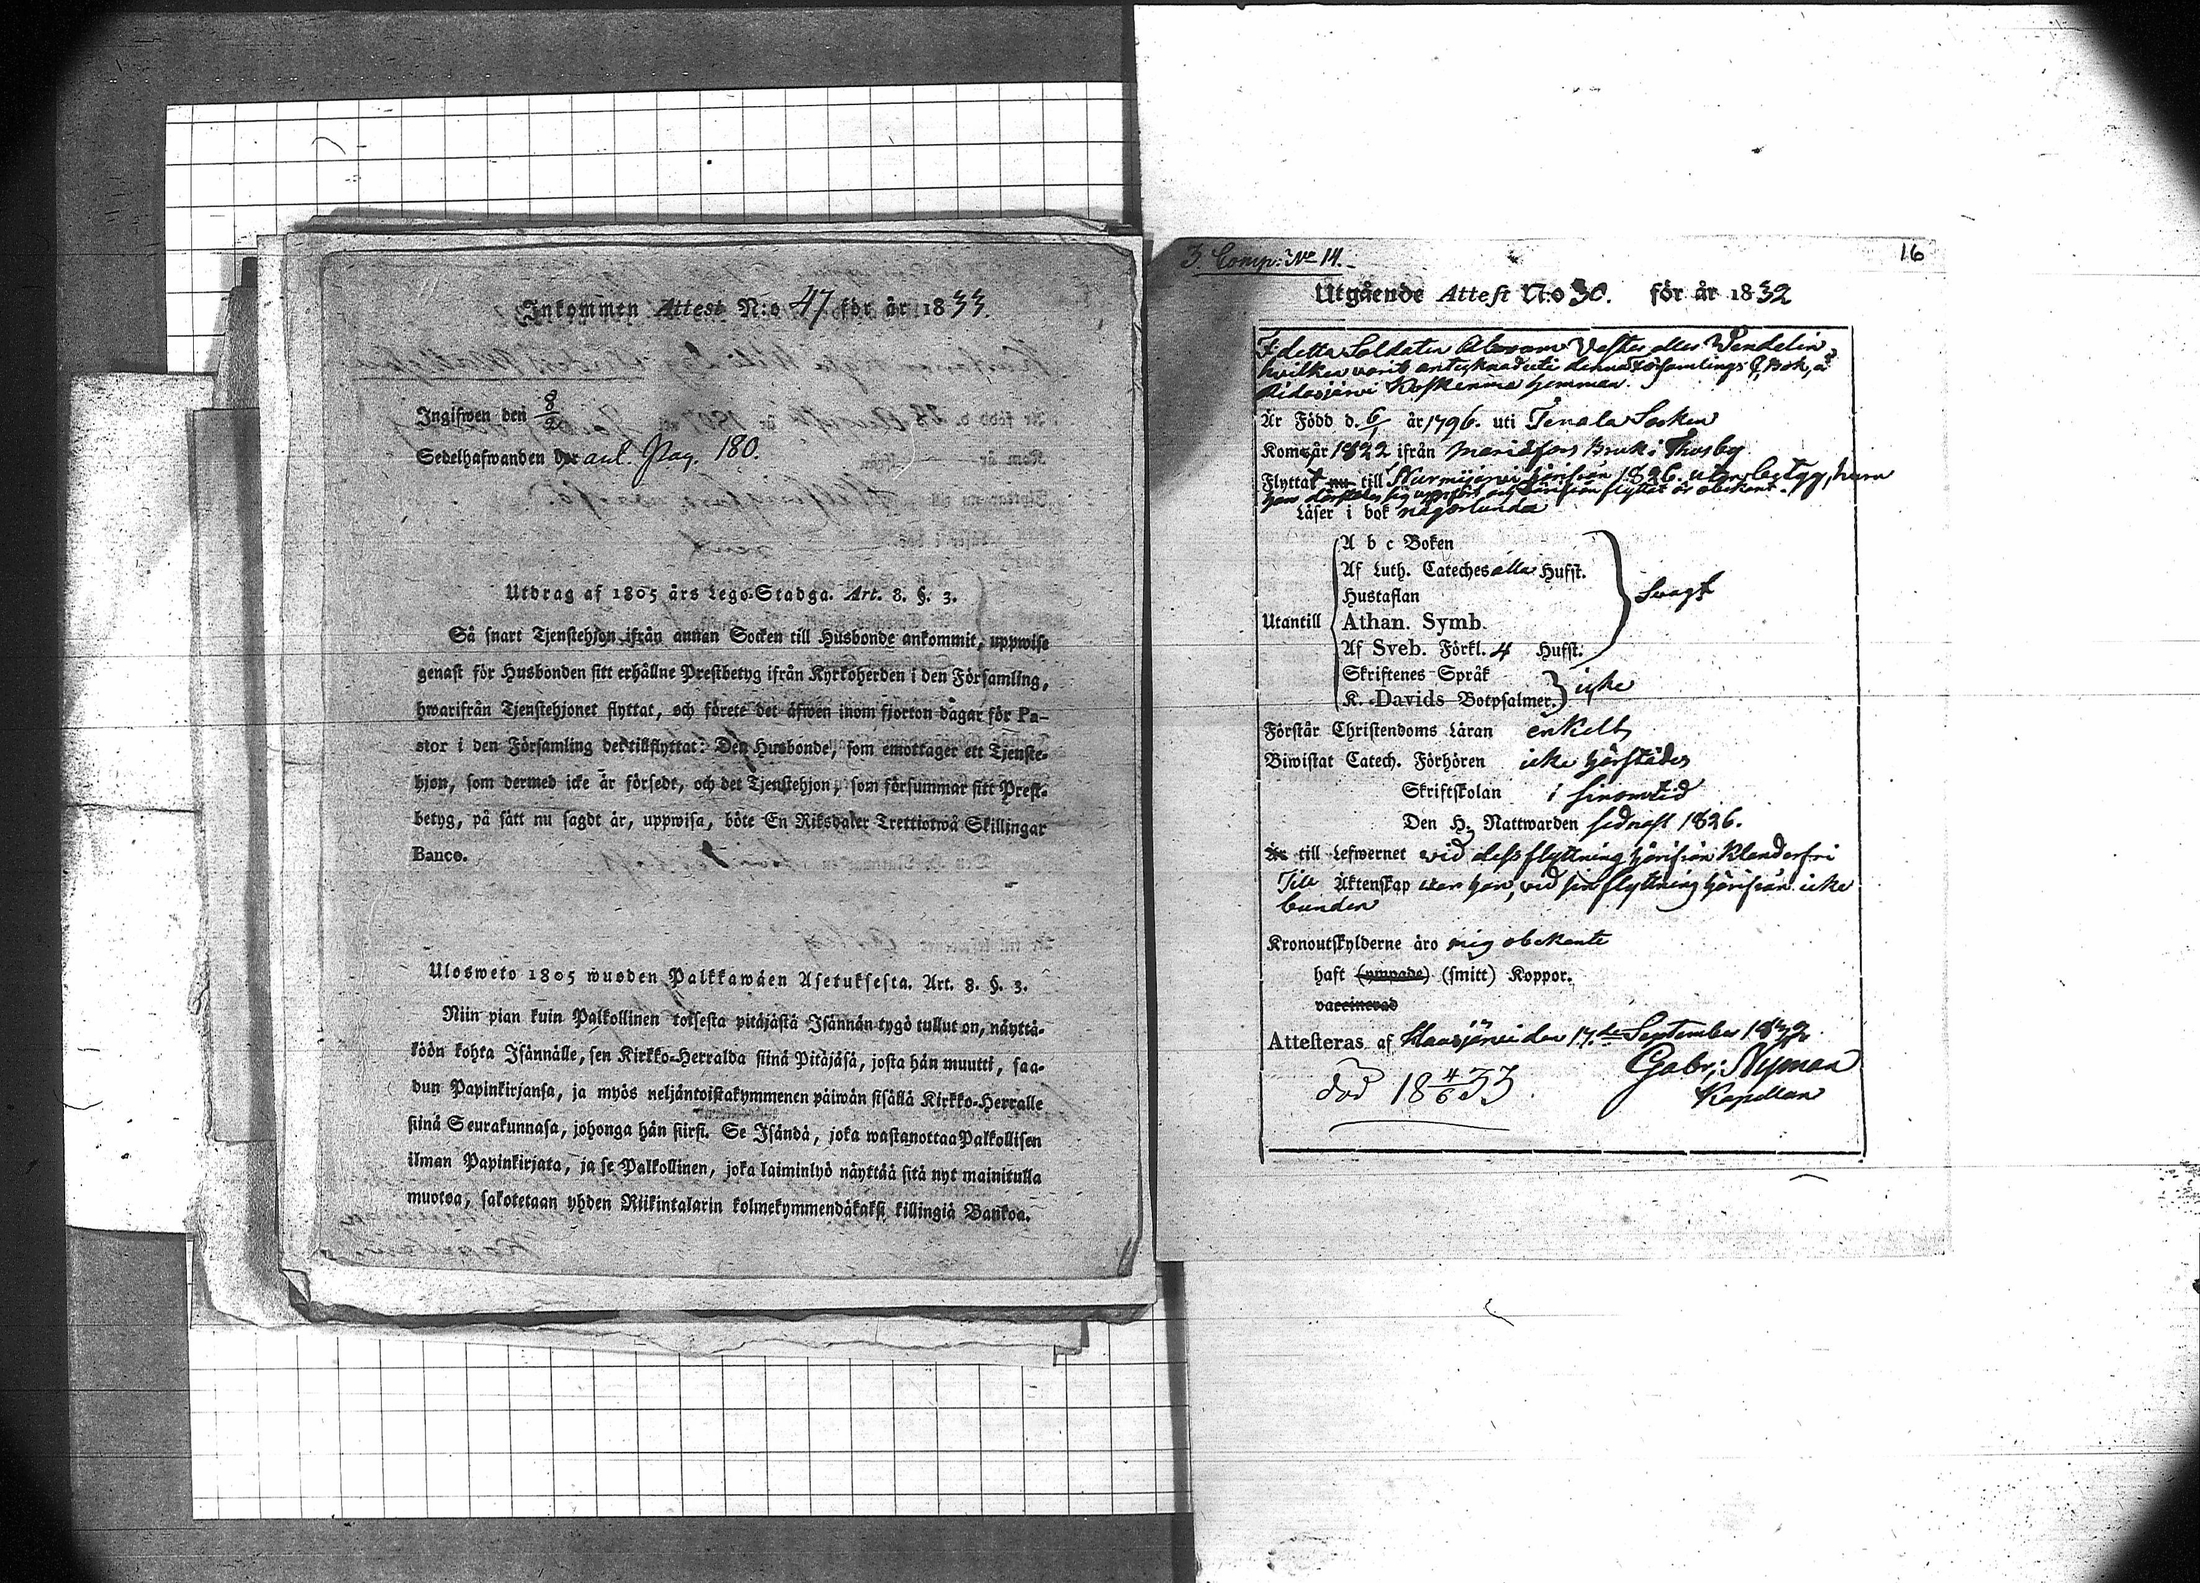 Inkommen Attest N:o 47 för år 1833.
Ingifwen den 8/2
Sedelhafwanden her anl. Pag. 180.
Utdrag af 1805 års Lego-Stadga. Art. 8. §. 3.
Så snart Tjenstehjon ifrån annan Socken till Husbonde ankommit, uppwise
genast för Husbonden sitt erhållne Prestbetyg ifrån Kyrkoherden i den Församling,
hwarifrån Tjenstehjonet flyttat, och förete det äfwen inom fjorton dagar för Pa-
stor i den Församling det tillflyttat: Den Husbonde, som emottager ett Tjenste-
hjon, som dermed icke är försedt, och det Tjenstehjon, som försummar sitt Prest-
betyg, på sätt nu sagdt är, uppwisa, böte En Riksdaler Trettiotwå Skillingar
Banco.
Ulosweto 1805 wuoden Palkkawäen Asetuksesta. Art. 8. §. 3.
Niin pian kuin Palkollinen toisesta pitäjästä Isännän tygö tullut on, näyttä-
köön kohta Isännälle, sen Kirkko-Herralda siinä Pitäjäsä, josta hän muutti, saa-
dun Papinkirjansa, ja myös neljäntoistakymmenen päiwän sisällä Kirkko-Herralle
siinä Seurakunnasa, johonga hän siirsi. Se Isändä, joka wastanottaa Palkollisen
ilman Papinkirjata, ja se Palkollinen, joka laiminlyö näyttää sitä nyt mainitulla
muotoa, sakotetaan yhden Riikintalarin kolmekymmendäkaksi killingiä Bankoa.
3 Comp: No 14.
16
Utgående Attest N:o 30. för år 1832
F detta Soldaten Abram Vester eller Wendelin,
hvilken varit antecknad uti denna Församlings Bok, å
Ridasjärvi Koskenma hemman.
Är Född d. 6/1 år 1796. uti Tenala Socken
Kom år 1822 ifrån Mariefors Bruk i Thusby
Flyttat nu till Nurmijärvi härifrån 1826. utan betyg, huru
han därstädes sig uppfört och därifrån flyttat är obekant.
Läser i bok någorlunda
Utantill
A b c Boken
Af Luth. Cateches alla Hufst.
Hustaflan
Athan. Symb.
Af Sveb. Förkl. 4 Hufst.
Svagt
Skriftenes Språk
K. Davids Botpsalmer.
icke
Förstår Christendoms Läran enkelt
Biwistat Catech. Förhören icke härstädes
Skriftskolan i sinom tid
Den H. Nattwarden sednast 1826.
Är till Lefwernet vid dess flyttning härifrån klanderfri
Till Äktenskap var han, vid sin flyttning härifrån icke
bunden
Kronoutskylderne äro mig obekante
haft (ympade) (smitt) Koppor.
vaccinerad
Attesteras af Haasjärvi den 17.de September 1832
Gabr: Nyman
Kapellan
död 18 4/6 33